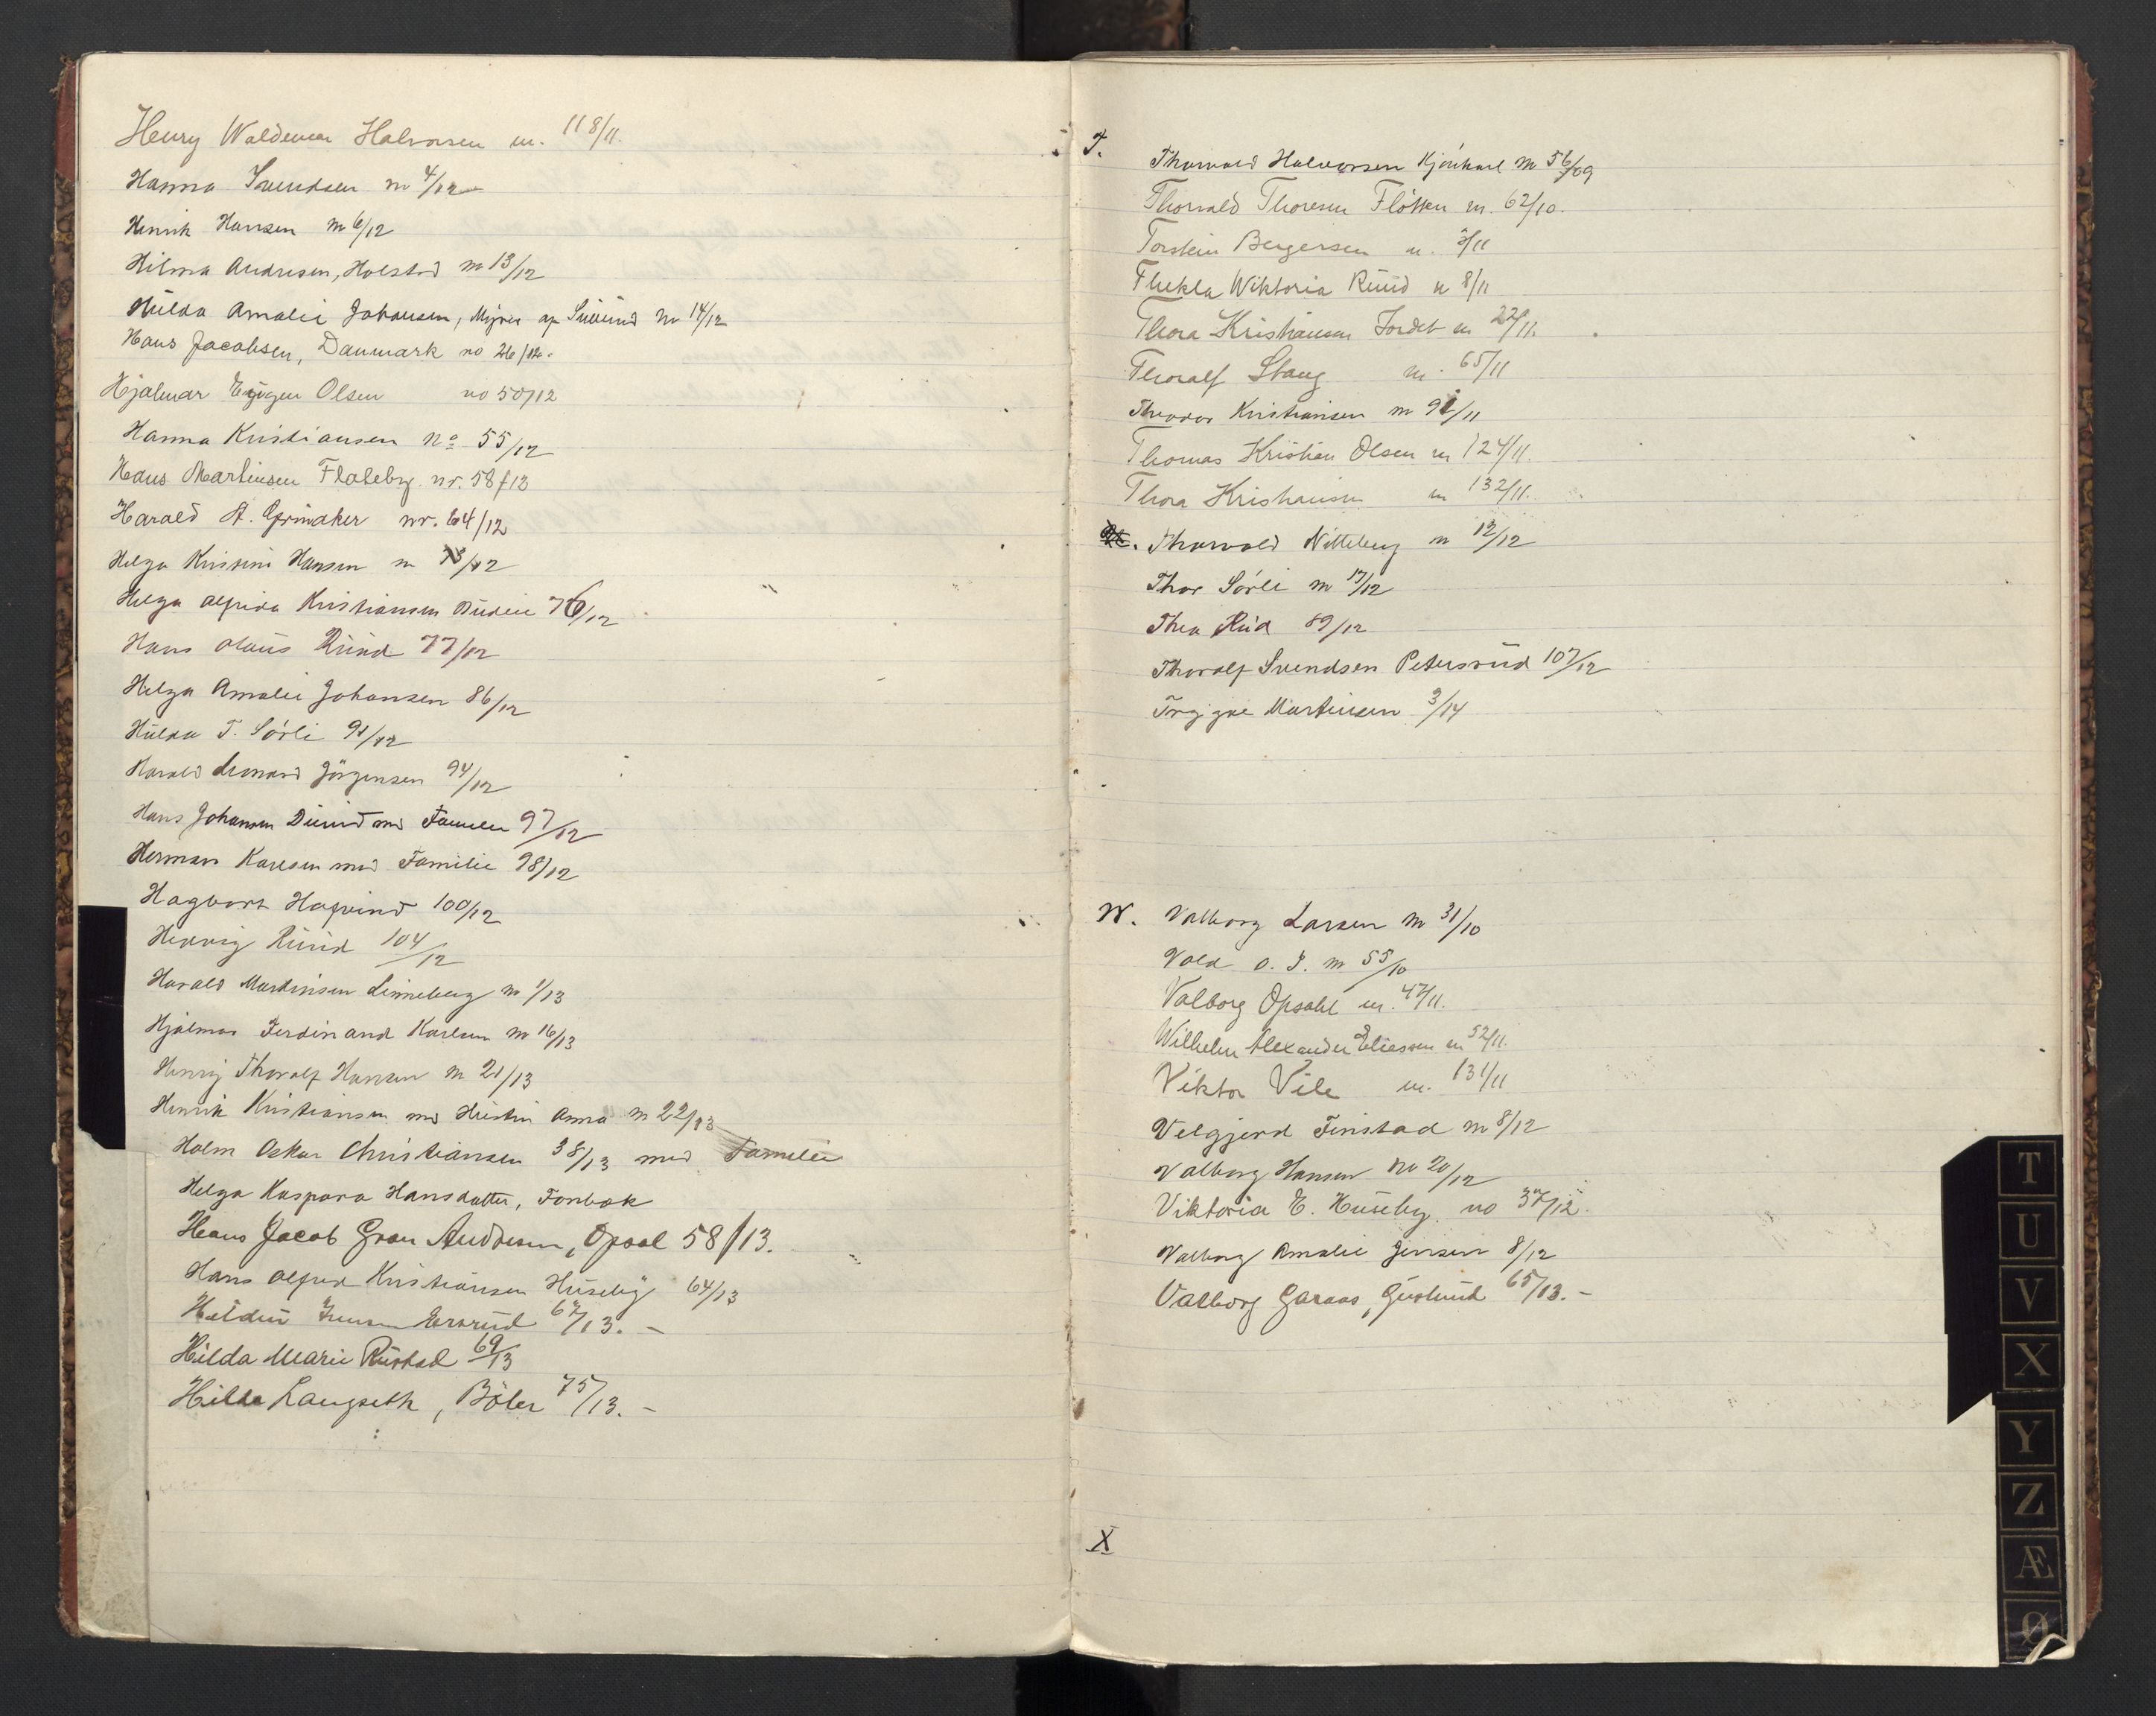 Henry Waldemar Halvorsen nr. 118/11.
Hanna Svendsen nr 4/12
Henrik Hansen nr 6/12
Hilma Andresen, Holstad nr 13/12
Hilda Amalie Johansen, Myrer ap nr 14/12
Hans Jacobsen, Danmark no 26/12.
Hjalmar Eugen Olsen no 50/12
Hanna Kristiansen No 55/12
Hans Martinsen Flateby. nr. 58/12
Harald A. Grindaker nr. 64/12
Helga Kristine Hansen nr /12
Helga Alfrida Kristiansen 76/12
Hans Olaus Ruud 77/12
Helga Amalie Johansen 86/12
Hulda T. Sörli 91/12
Harald Leonard Jörgensen 94/12
Hans Johansen med Familie 97/12
Herman Karlsen med Familie 98/12
Hagbart Hagvind 100/12
Hedvig Ruud 104/12
Harald Martinsen Linneberg nr 1/13
Hjalmar Ferdinand Karlsen nr 16/13
Henry Thoralf Hansen nr 21/13
Henrik Kristiansen med Hustru Anna nr 22/13
Holm Oskar Christiansen 38/13 med Familie
Helga Kaspara Hansdatter, Fonbæk
Hans Jacob Gran Andresen, Opsal 58/13.
Hans Alfred Kristiansen Huseby 64/13
Jensen 67/13. -
Hilda Marie Rustad 69/13
Hilda Langseth, Böler 75/13. -
T.
Thorvald Halvorsen nr 56/09
Thorvald Thoresen Flötten nr. 62/10.
Torstein Bergersen nr. 3/11
Thekla Wiktoria Ruud nr 8/11
Thora Kristiansen Jordet nr 22/11.
Thoralf Stang nr. 65/11
Theodor Kristiansen nr 91/11
Thomas Kristian Olsen nr 124/11.
Thora Kristiansen nr 132/11.
Thorvald Nitteberg nr 12/12
Thor Sörli nr 17/12
Thea Rud 89/12
Thoralf Svendsen Petersrud 107/12
Trygve Martinsen 3/14
W.
Valborg Larsen nr 31/10
Vold O. J. nr 55/10
Valborg Opsahl nr. 47/11.
Wilhelm Alexander Eliassen nr 52/11.
Viktor Vile nr. 131/11
Velgjerd Finstad nr 8/12
Valborg Hansen no 20/12
Viktoria E. Huseby. no 37/12.
Valborg Amalie Jensen 8/12
Valborg Garaas, 65/13. -
X
T
U
V
X
Y
Z
Æ
Ø